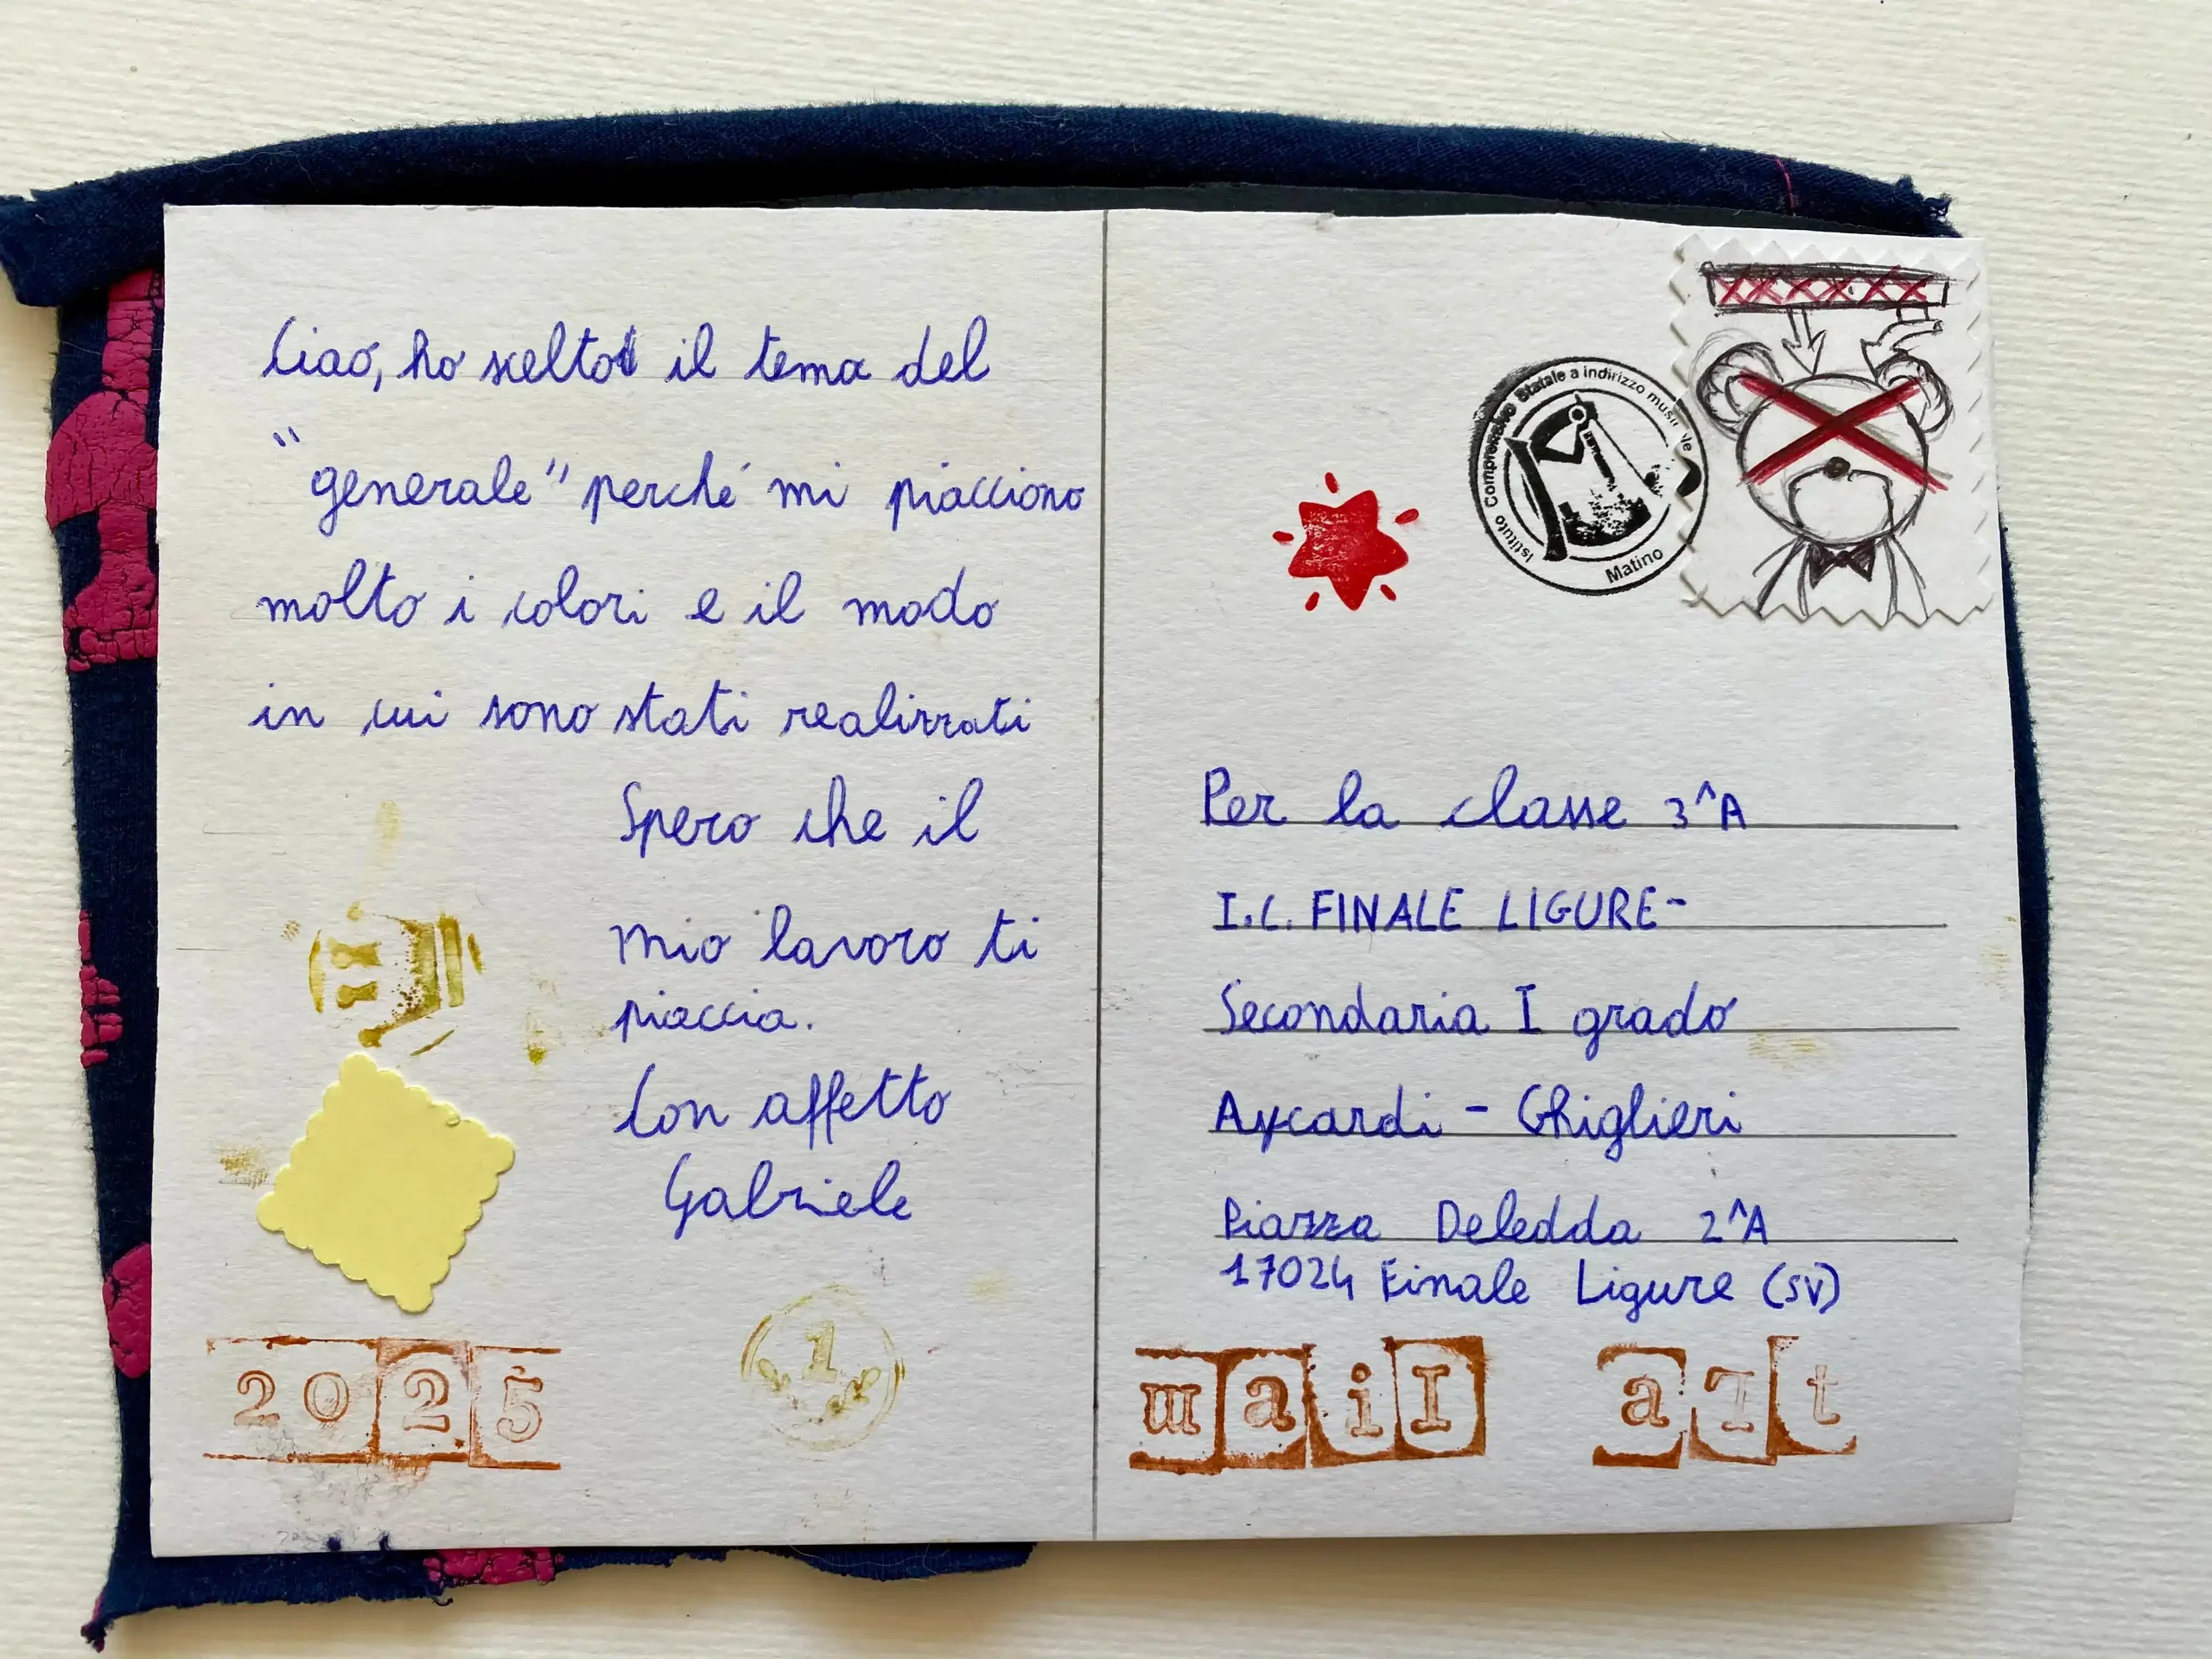 Ciao, ho scelto il tema del
"generale" perché mi piacciono
molto i colori e il modo
in cui sono stati realizzati
Spero che il
mio lavoro ti
piaccia.
Con affetto
Gabriele
2025
1
Istituto Comprensivo Statale a indirizzo musicale
Matino
Per la classe 3^A
I.C. FINALE LIGURE-
Secondaria I grado
Aycardi - Ghiglieri
Piazza Deledda 2^A
17024 Finale Ligure (SV)
mail art